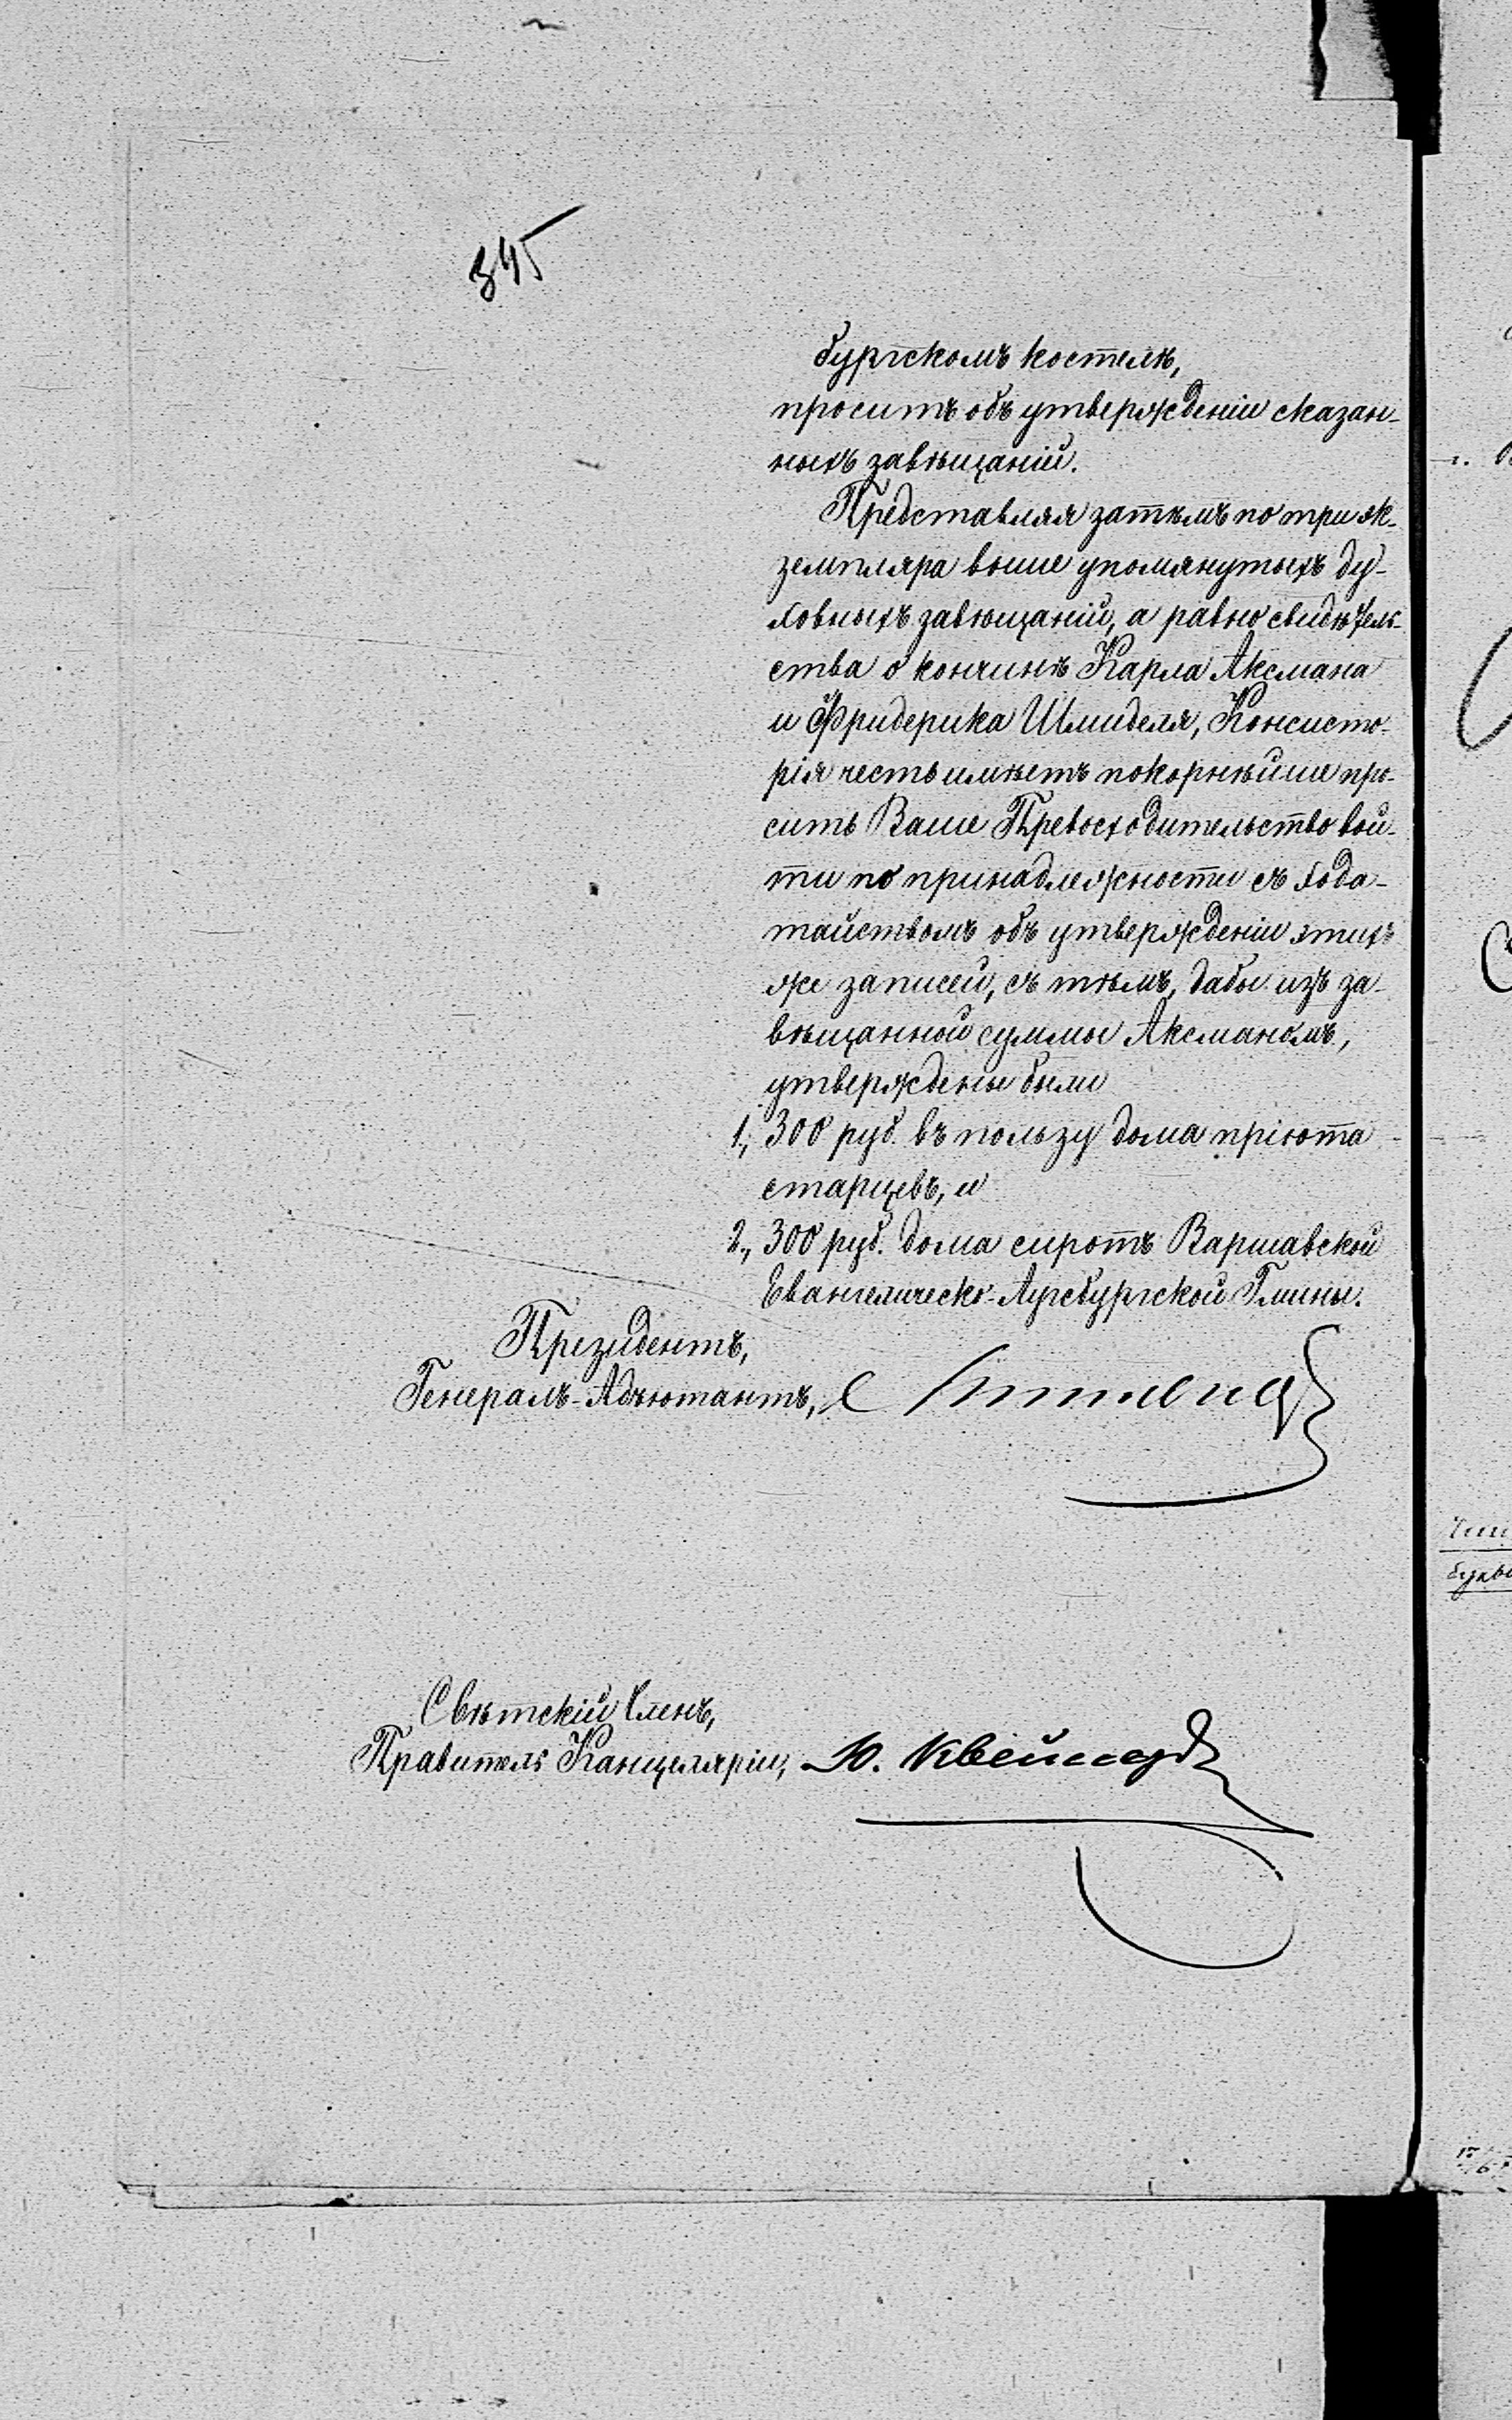 345
бургскомъ костелѣ,
проситъ объ утвержденіи сказан-
ныхъ завѣщаній.
Представляя затѣмъ по три эк-
земпляра выше упомянутыхъ ду-
ховныхъ завѣщаній, а равно свидѣтель-
ства о кончинѣ Карла Аксмана
и Фридерика Шмиделя, Консисто-
рія честь имѣетъ покорнѣйше про-
сить Ваше Превосходительство вой-
ти по принадлежности съ хода-
тайствомъ объ утвержденіи этихъ
же записей, съ тѣмъ, дабы изъ за-
вѣщанной суммы Аксманомъ,
утверждены были
1, 300 руб. въ пользу дома пріюта
старцевъ, и
2, 300 руб. дома сиротъ Варшавской
Евангелическо-Аугсбургской Гмины.
Президентъ,
Генералъ-Адъютантъ,
Свѣтскій Членъ,
Правитель Канцеляріи, Ю.